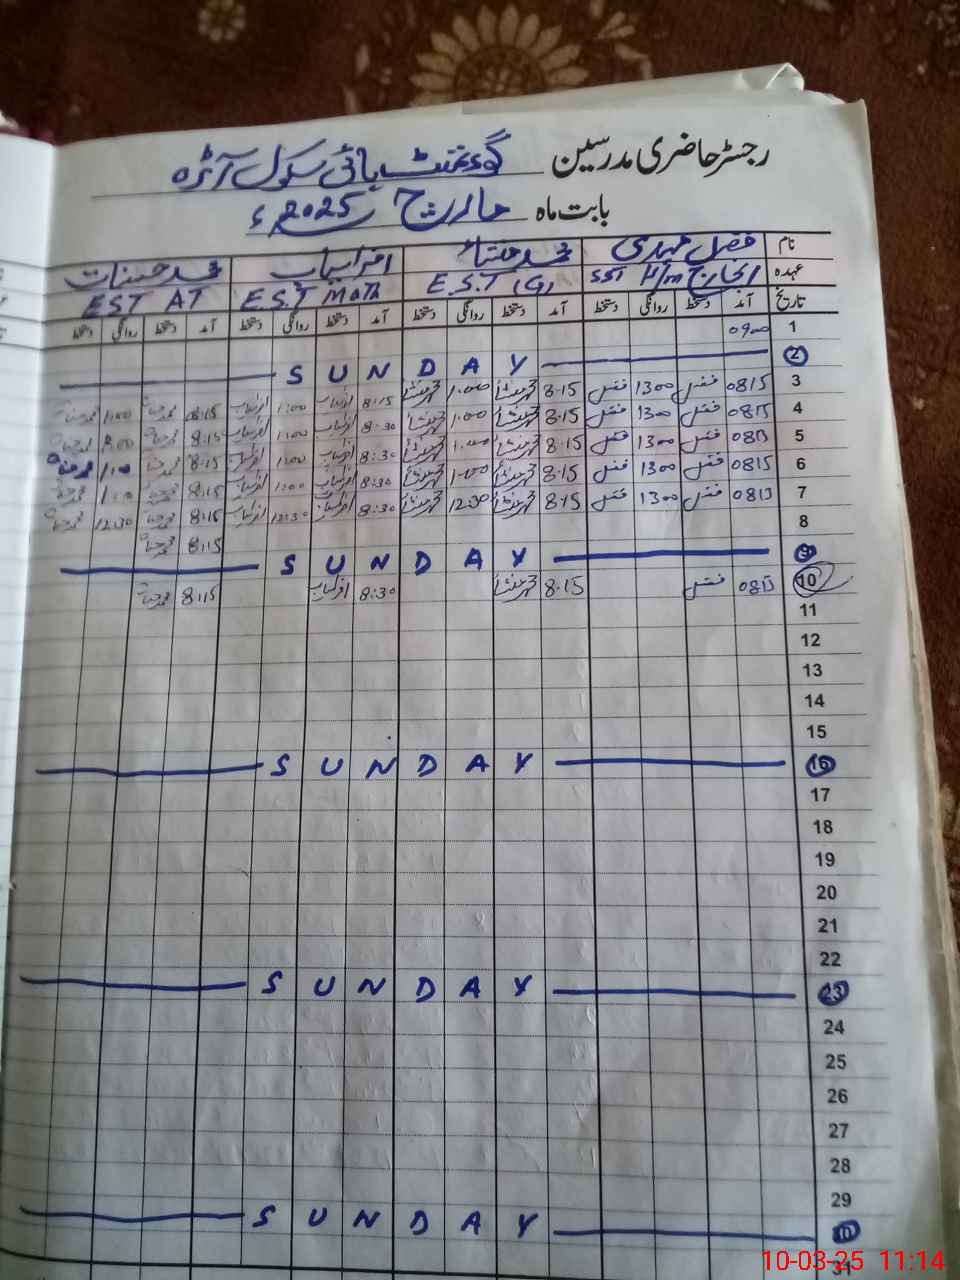 رجسٹر حاضری مدرسین گورنمنٹ ہائی سکول آئزہ
بابت ماہ مارچ 2025ء
نام فضل مہدی محمد منشاء افراسیاب محمد حسنات
عہدہ انچارج H/m SST E.S.T (G) E.S.T Math EST AT
تاریخ آمد دستخط روانگی دستخط آمد دستخط روانگی دستخط آمد دستخط روانگی دستخط آمد دستخط روانگی دستخط
1 0900
2 SUNDAY
3 0815 فضل 1300 فضل 8:15 محمد منشاء 1:00 محمد منشاء 8:15 افراسیاب 1:00 افراسیاب 8:15 محمد حسنات 1:00 محمد حسنات
4 0815 فضل 1300 فضل 8:15 محمد منشاء 1:00 محمد منشاء 8:30 افراسیاب 1:00 افراسیاب 8:15 محمد حسنات 1:00 محمد حسنات
5 0815 فضل 1300 فضل 8:15 محمد منشاء 1:00 محمد منشاء 8:30 افراسیاب 1:00 افراسیاب 8:15 محمد حسنات 1:00 محمد حسنات
6 0815 فضل 1300 فضل 8:15 محمد منشاء 1:00 محمد منشاء 8:30 افراسیاب 1:00 افراسیاب 8:15 محمد حسنات 1:00 محمد حسنات
7 0815 فضل 1300 فضل 8:15 محمد منشاء 12:30 محمد منشاء 8:30 افراسیاب 12:30 افراسیاب 8:15 محمد حسنات 12:30 محمد حسنات
8 8:15 محمد حسنات
9 SUNDAY
10 0815 فضل 8:15 محمد منشاء 8:30 افراسیاب 8:15 محمد حسنات
11
12
13
14
15
16 SUNDAY
17
18
19
20
21
22
23 SUNDAY
24
25
26
27
28
29
30 SUNDAY
31
10-03-25 11:14